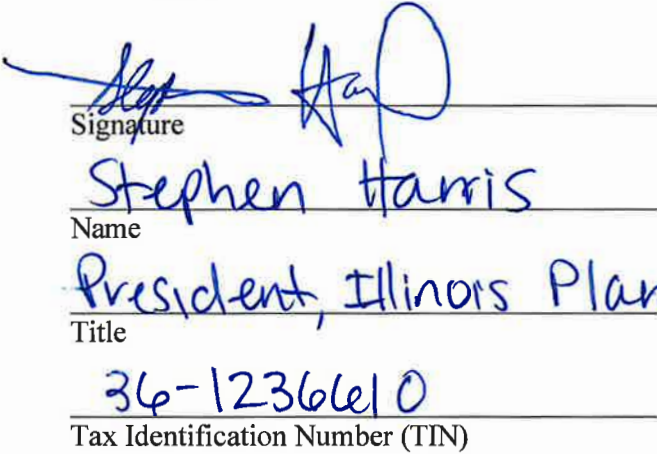 Signature
Stephen Harris
Name
President, Illinois Plan
Title
36-1236610
Tax Identification Number (TIN)